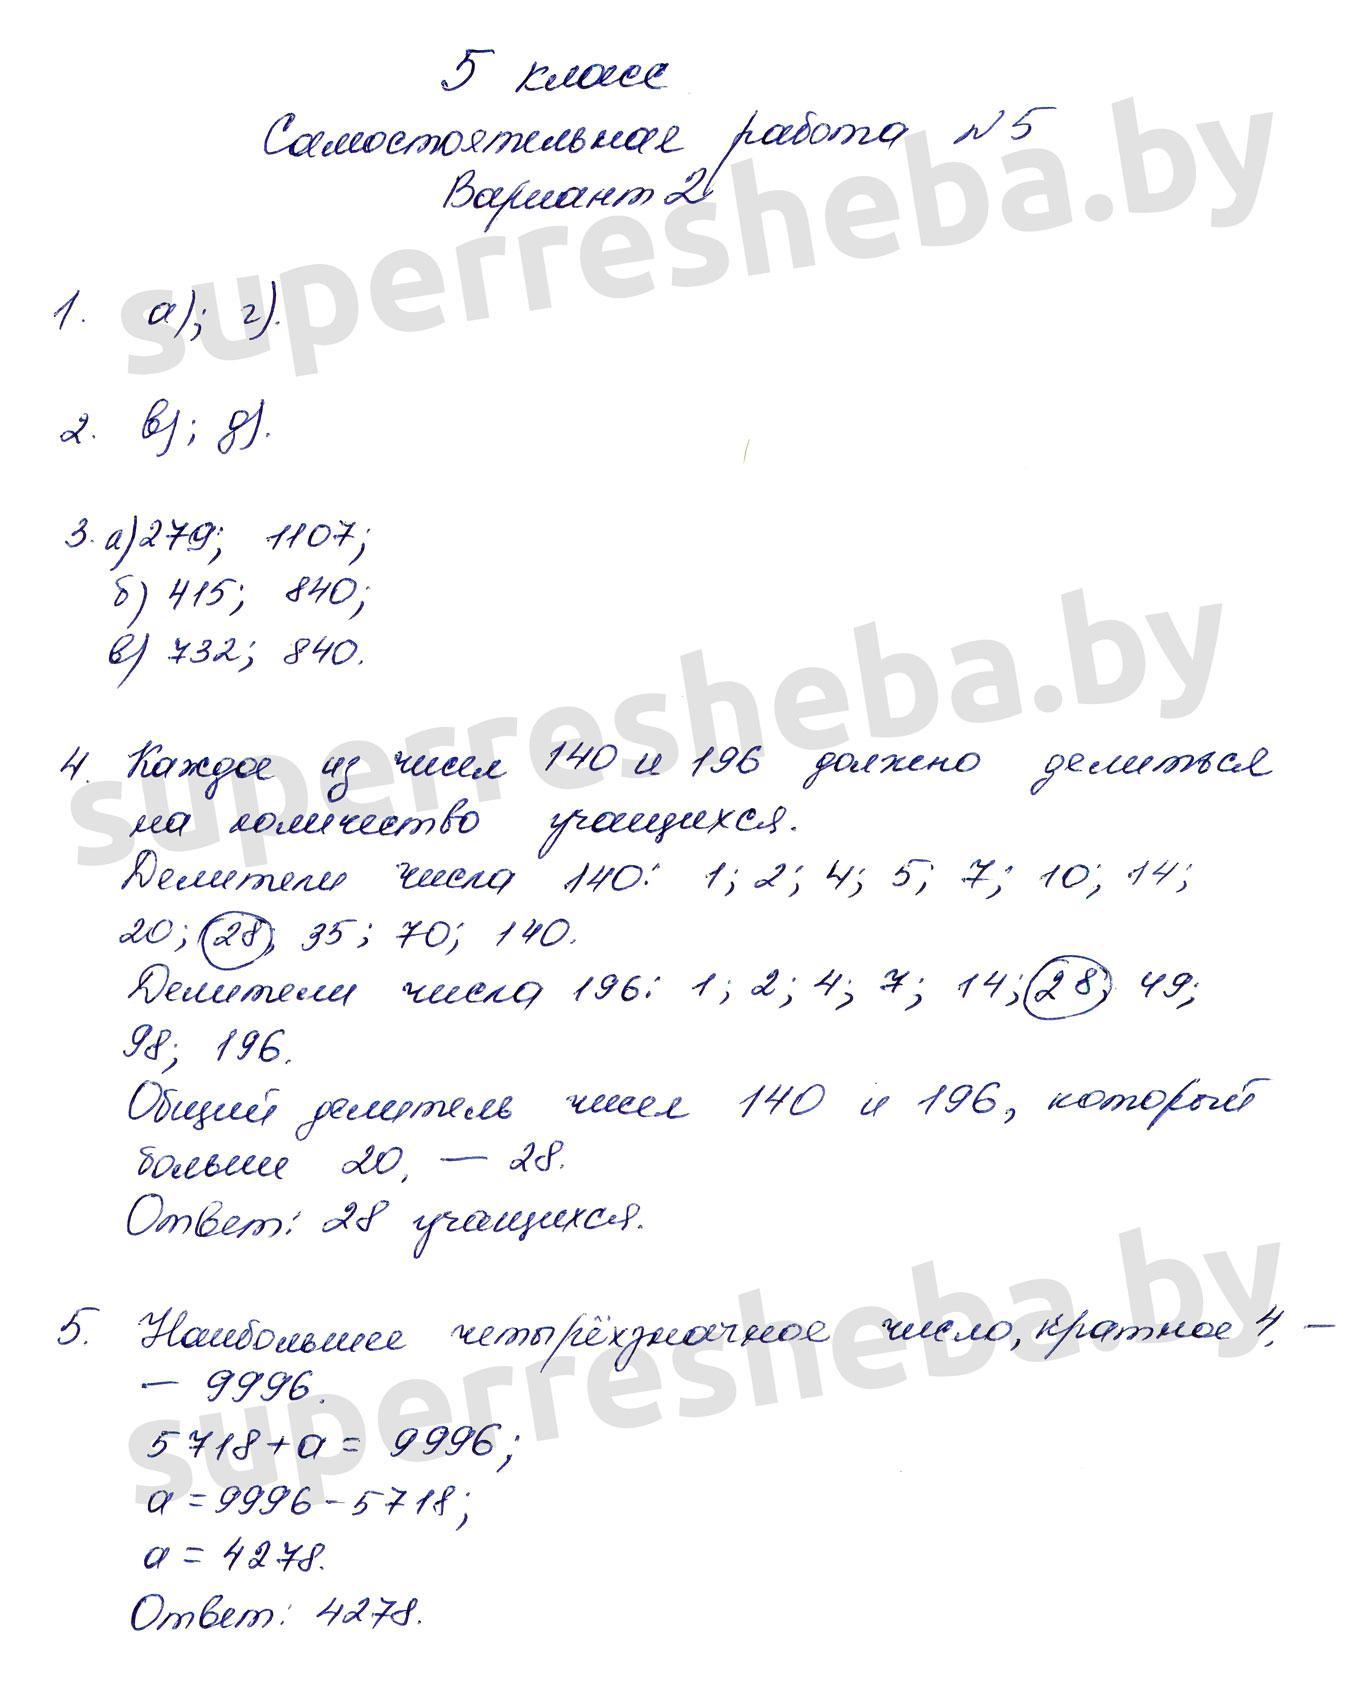 5 класс
Самостоятельная работа №5
Вариант 2
1. а); г).
2. в); д).
3. а) 279; 1107;
б) 415; 840;
в) 732; 840.
4. Каждое из чисел 140 и 196 должно делиться
на количество учащихся.
Делители числа 140: 1; 2; 4; 5; 7; 10; 14;
20; 28; 35; 70; 140.
Делители числа 196: 1; 2; 4; 7; 14; 28; 49;
98; 196.
Общий делитель чисел 140 и 196, который
больше 20, — 28.
Ответ: 28 учащихся.
5. Наибольшее четырёхзначное число, кратное 4, —
— 9996.
5718 + а = 9996;
а = 9996 - 5718;
а = 4278.
Ответ: 4278.
superresheba.by
superresheba.by
superresheba.by